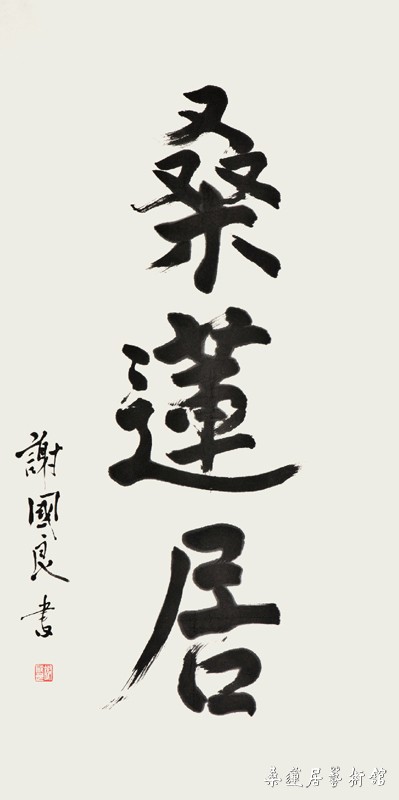 桑蓮居
謝國良書
桑蓮居藝術館